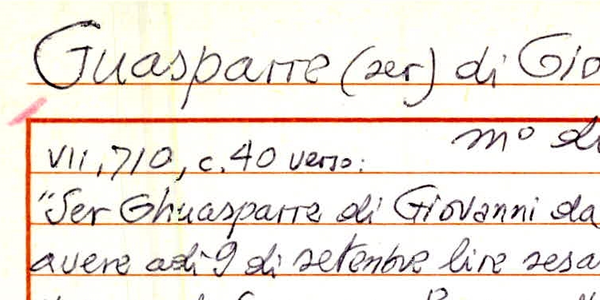 Guasparre (ser) di Gio
mº di
VII, 710, c. 40 verso:
"Ser Ghuasparre di Giovanni da
avere adì 9 di setenbre lire sesa